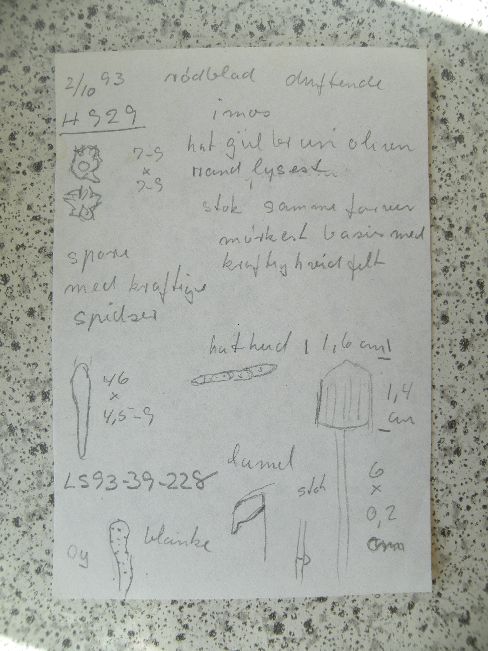 2/10 93 rødblad duftende
4929 i mos
hat gul brun oliven
7-9 x 7-9 rand lysest
stok samme farver
mørkest basis med
spore kraftig hvid filt
med kraftige
spidser
hathud 1,6 cm
46 x 4,5-9
1,4 cm
lamel
LS93-39-228
stok
6 x 0,2 cm
blanke